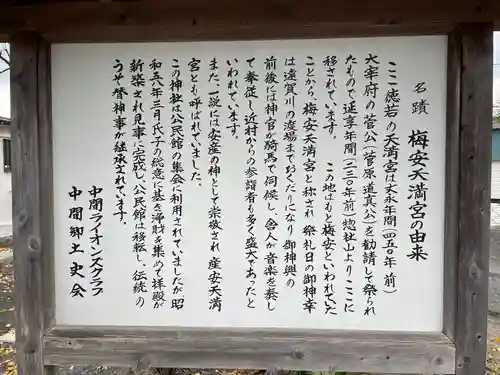 名蹟 梅安天満宮の由来
ここ徳若の天満宮は文永年間(四五〇年前)
大宰府の菅公(菅原道真公)を勧請して祭られ
たもので延享年間(二三〇年前)惣社山よりここに
移されています。 この地はもと梅安といわれていた
ことから梅安天満宮と称され 祭礼日の御神幸
は遠賀川の渡場までおくだりになり御神輿の
前後には神官が騎馬で伺候し、舎人が音楽を奏し
て奉従し近村からの参詣者も多く盛大であったと
いわれています。
また一説には安産の神として崇敬され 産安天満
宮とも呼ばれていました。
この神社は公民館の集会に利用されていましたが昭
和五八年三月氏子の総意に基き浄財を集めて拝殿が
新築され見事に完成し、公民館は移転し、伝統の
うそ替神事が継承されています。
中間ライオンズクラブ
中間郷土史会